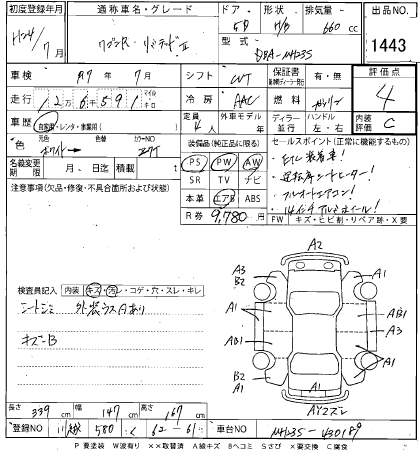 初度登録年月 通称車名・グレード ドア 形状 排気量 出品NO.
H24/7月 ワゴンR・リミテッドⅡ 5D H/B 660 cc 1443
型式 DBA-MH23S
車検 R7年 7月 シフト CVT 保証書 有・無 評価点
走行 12万6千591 マイル キロ 冷房 AAC 燃料 ガソリン 4
車歴 自家用・レンタ・事業用( ) 定員 4人 外車モデル 年 ディーラー 並行 ハンドル 左・右 内装評価 C
色 元色 ホワイト→ 色替 カラーNO Z7T 装備品(純正品に限る) セールスポイント(正常に機能するもの)
名義変更期限 月 日迄 積載 t PS PW AW ・ETC装着車!
注意事項(欠品・修復・不具合箇所および状態) SR TV ナビ ・運転席シートヒーター!
本革 エアB ABS ・フルオートエアコン!
R券 9,780 ・14インチアルミホイール!
FW キズ・ヒビ・割・リペア跡・X要
A2
A3 B2 A1
検査員記入 内装 キズ・汚レ・コゲ・穴・スレ・キレ
シートシミ 外装ウス凹あり A1 A1
キズ・B AB1 A3
AB1
B2 A2 A1
A1
A1 Y2ズレ
長さ 339 cm 幅 147 cm 高さ 167 cm
登録NO 川越 580 く 62-61 車台NO MH23S-430189
P 要塗装 W波有り ××取替済 A線キズ Bヘコミ Sさび ×要交換 C腐食